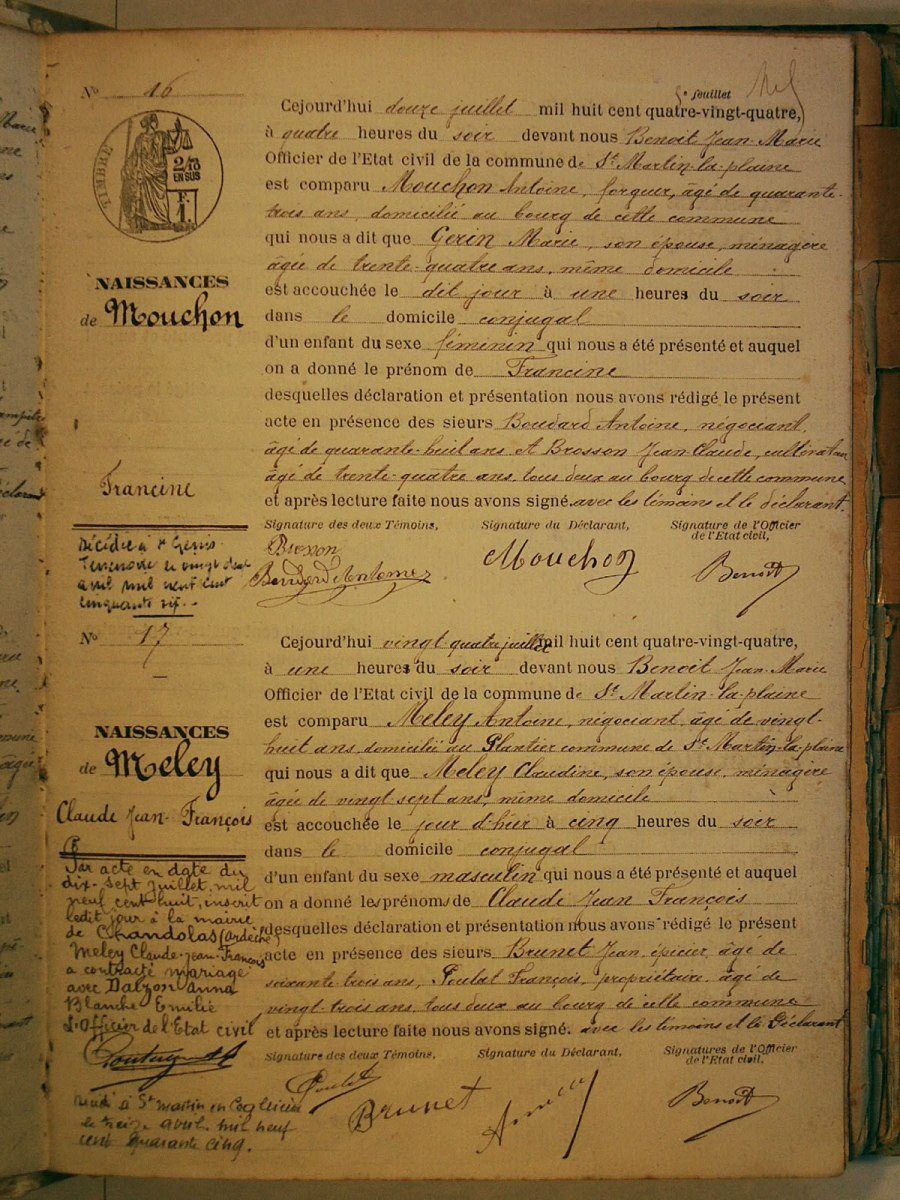 5e feuillet
No 16
TIMBRE
2/10
EN SUS
F.
1.
NAISSANCES
de Mouchon
Francine
Décédée à St Genis
Terrenoire le vingt deux
avril mil neuf cent
cinquante six
Cejourd'hui douze juillet mil huit cent quatre-vingt-quatre,
à quatre heures du soir devant nous Benoit Jean-Marie
Officier de l'Etat civil de la commune de St Martin-la-plaine
est comparu Mouchon Antoine, forgeur, âgé de quarante-
trois ans, domicilié au bourg de cette commune
qui nous a dit que Gerin Marie, son épouse, ménagère
âgée de trente-quatre ans, même domicile
est accouchée le dit jour à une heures du soir
dans le domicile conjugal
d'un enfant du sexe féminin qui nous a été présenté et auquel
on a donné le prénom de Francine
desquelles déclaration et présentation nous avons rédigé le présent
acte en présence des sieurs Boudard Antoine, négociant,
âgé de quarante-huit ans et Brosson Jean-Claude, cultivateur
âgé de trente-quatre ans, tous deux au bourg de cette commune
et après lecture faite nous avons signé avec les témoins et le déclarant.
Signature des deux Témoins, Signature du Déclarant, Signature de l'Officier
de l'Etat civil,
Brosson
Mouchon
Benoit
No 17
NAISSANCES
de Meley
Claude Jean-François
Par acte en date du
dix-sept Juillet, mil
neuf cent huit, inscrit
ledit jour à la mairie
de Chandolas (Ardèche)
Meley Claude-Jean-François
a contracté mariage
avec Dalzon Anna
Blanche Emilie
L'Officier de l'Etat civil
St Martin en
le treize avril mil neuf
cent quarante cinq.
Cejourd'hui vingt quatre juillet mil huit cent quatre-vingt-quatre,
à une heures du soir devant nous Benoit Jean-Marie
Officier de l'Etat civil de la commune de St Martin-la-plaine
est comparu Meley Antoine, négociant, âgé de vingt-
huit ans, domicilié au Plantier commune de St Martin-la-plaine
qui nous a dit que Meley Claudine, son épouse, ménagère
âgée de vingt sept ans, même domicile
est accouchée le jour d'hier à cinq heures du soir
dans le domicile conjugal
d'un enfant du sexe masculin qui nous a été présenté et auquel
on a donné les prénoms de Claude Jean François
desquelles déclaration et présentation nous avons rédigé le présent
acte en présence des sieurs Brunet Jean, épicier, âgé de
soixante trois ans, Poulat François, propriétaire, âgé de
vingt-trois ans, tous deux au bourg de cette commune
et après lecture faite nous avons signé. avec les témoins et le Déclarant
Signature des deux Témoins, Signature du Déclarant, Signatures de l'Officier
de l'Etat civil,
Poulat
Brunet
Benoit